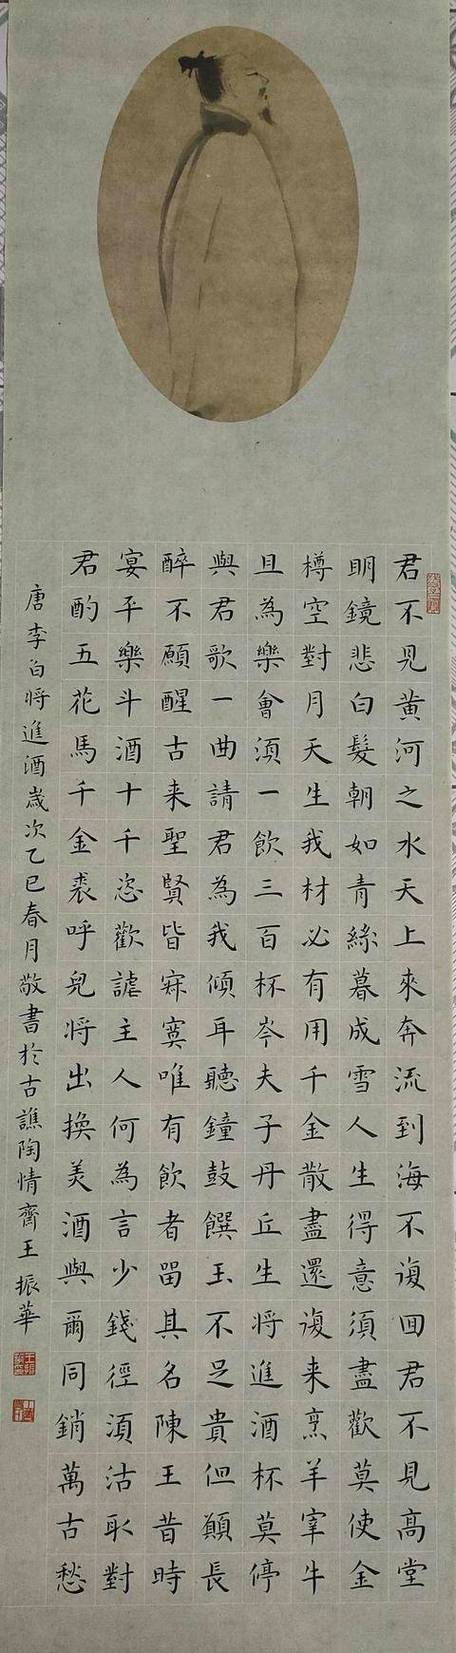 君不見黄河之水天上來奔流到海不復回君不見高堂
明鏡悲白髮朝如青絲暮成雪人生得意須盡歡莫使金
樽空對月天生我材必有用千金散盡還復来烹羊宰牛
且為樂會須一飲三百杯岑夫子丹丘生将進酒杯莫停
與君歌一曲請君為我傾耳聽鐘鼓饌玉不足貴但願長
醉不願醒古来聖賢皆寂寞唯有飲者留其名陳王昔時
宴平樂斗酒十千恣歡謔主人何為言少錢徑須沽取對
君酌五花馬千金裘呼兒将出換美酒與爾同銷萬古愁
唐李白将進酒歲次乙巳春月敬書於古譙陶情齊王振華